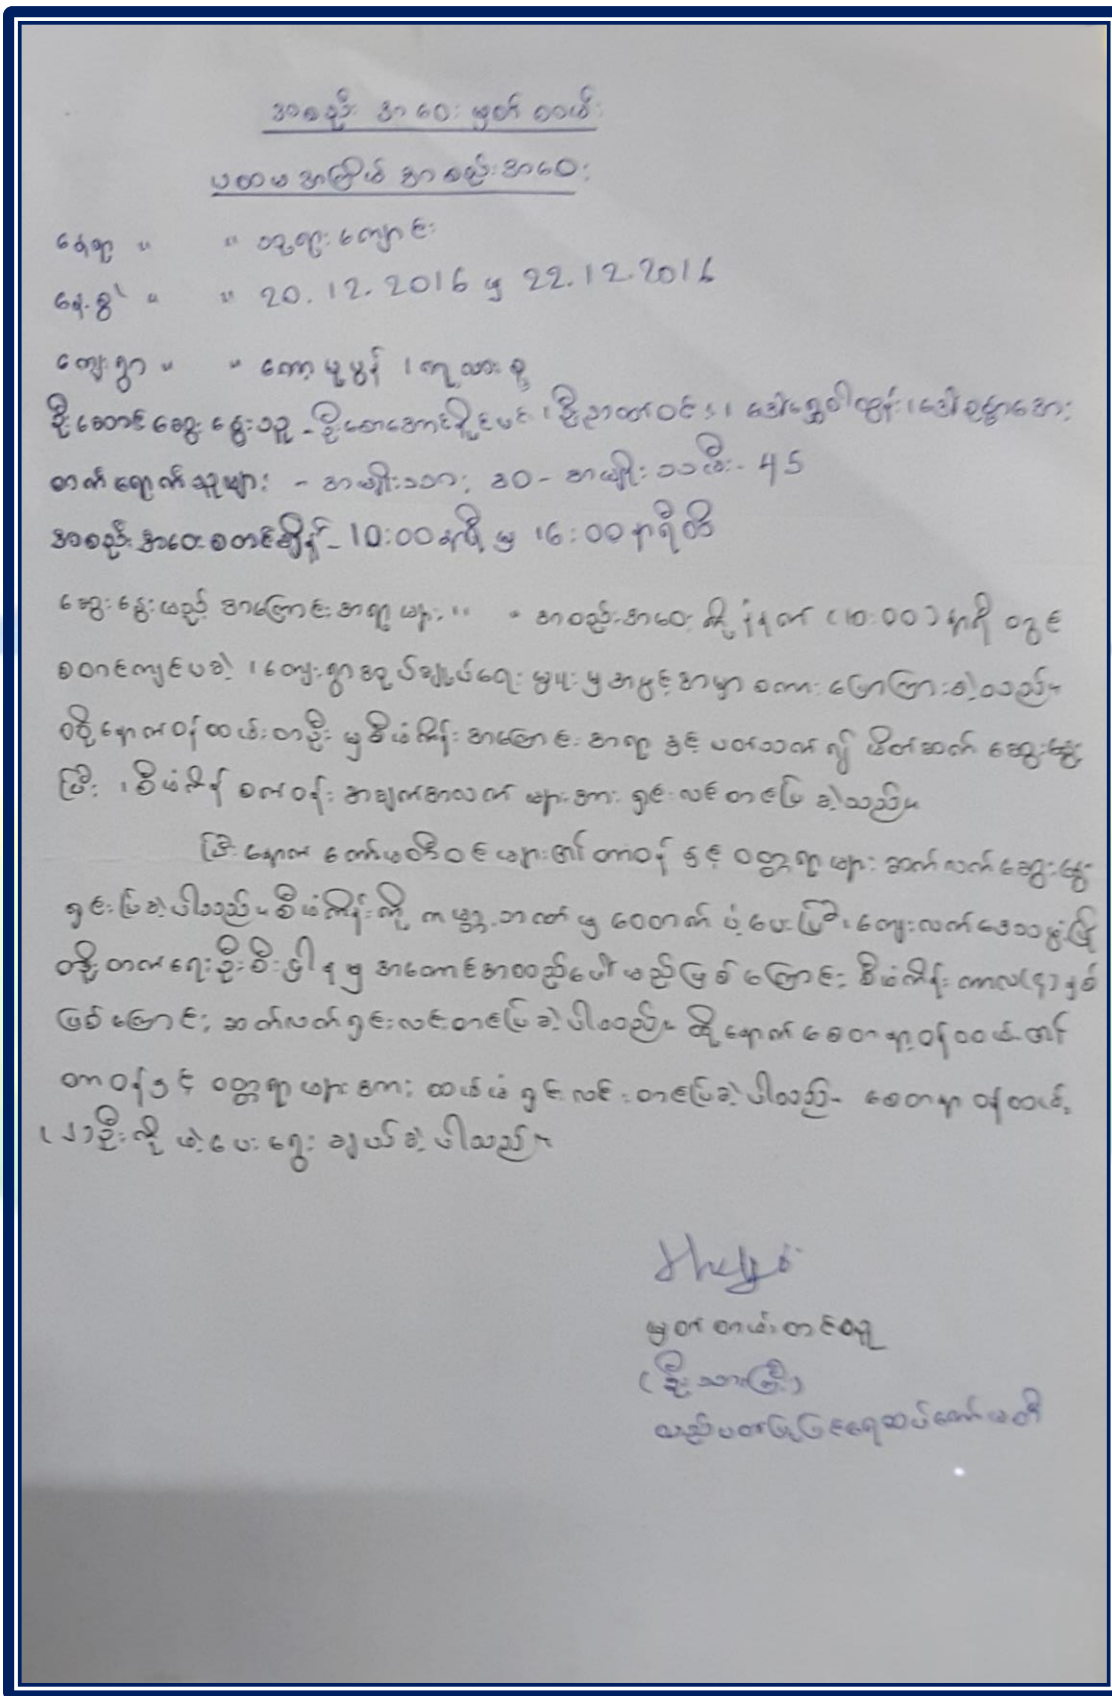 အစည်းအဝေးမှတ်တမ်း
ပထမအကြိမ်အစည်းအဝေး
နေရာ " " ဘုရားကျောင်း
နေ့စွဲ " " 20.12.2016 မှ 22.12.2016
ကျေးရွာ " "
ဦးဆောင်ဆွေးနွေးသူ -
တက်ရောက်သူများ - အမျိုးသား ၃၀ - အမျိုးသမီး - 45
အစည်းအဝေးစတင်ချိန် - 10:00 နာရီ မှ 16:00 နာရီထိ
ဆွေးနွေးမည့် အကြောင်းအရာများ " " အစည်းအဝေးကို နံနက် (10:00) နာရီ တွင်
စတင်ကျင်းပခဲ့ ၊ ကျေးရွာအုပ်ချုပ်ရေးမှူးမှ အဖွင့်အမှာစကား ပြောကြားခဲ့သည်။
ထို့နောက်ဝန်ထမ်းတဦး မှ စီမံကိန်း အကြောင်းအရာ နှင့် ပတ်သက်၍ မိတ်ဆက် ဆွေးနွေး
ပြီး ၊ စီမံကိန်း အချက်အလက် များအား ရှင်းလင်းတင်ပြ ခဲ့သည်။
ပြီးနောက် ကော်မတီဝင်များ၏ တာဝန် နှင့် ဝတ္တရားများ ဆက်လက်ဆွေးနွေး
ရှင်းပြခဲ့ပါသည်။ စီမံကိန်းကို ကမ္ဘာ့ဘဏ်မှ ထောက်ပံ့ပေးပြီး ၊ ကျေးလက်ဒေသဖွံ့ဖြိုး
တိုးတက်ရေးဦးစီးဌါန မှ အကောင်အထည်ဖေါ်မည်ဖြစ်ကြောင်း ၊ စီမံကိန်း ကာလ(၄)နှစ်
ဖြစ်ကြောင်း ဆက်လက်ရှင်းလင်းတင်ပြခဲ့ပါသည်။ ထို့နောက် စေတနာ့ဝန်ထမ်း၏
တာဝန်နှင့် ဝတ္တရားများအား ထပ်မံရှင်းလင်းတင်ပြခဲ့ပါသည်။ စေတနာ့ဝန်ထမ်း
(၂)ဦးကို မဲပေးရွေးချယ်ခဲ့ပါသည်။
မှတ်တမ်းတင်သူ